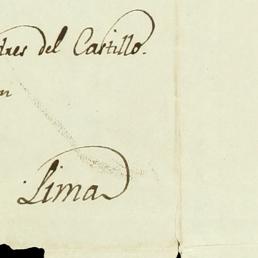 dres del Castillo.
en
Lima